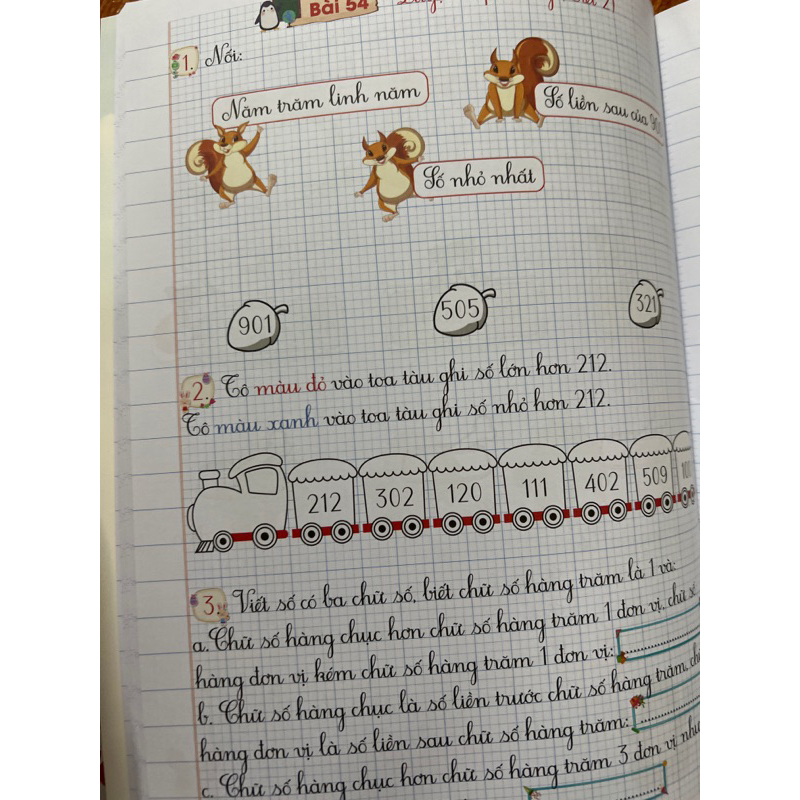 Bài 54
1. Nối:
Năm trăm linh năm
Số liền sau của
Số nhỏ nhất
901
505
321
2. Tô màu đỏ vào toa tàu ghi số lớn hơn 212.
Tô màu xanh vào toa tàu ghi số nhỏ hơn 212.
212 302 120 111 402 509
3. Viết số có ba chữ số, biết chữ số hàng trăm là 1 và:
a. Chữ số hàng chục hơn chữ số hàng trăm 1 đơn vị, chữ số
hàng đơn vị kém chữ số hàng trăm 1 đơn vị:
b. Chữ số hàng chục là số liền trước chữ số hàng trăm,
hàng đơn vị là số liền sau chữ số hàng trăm:
c. Chữ số hàng chục hơn chữ số hàng trăm 3 đơn vị